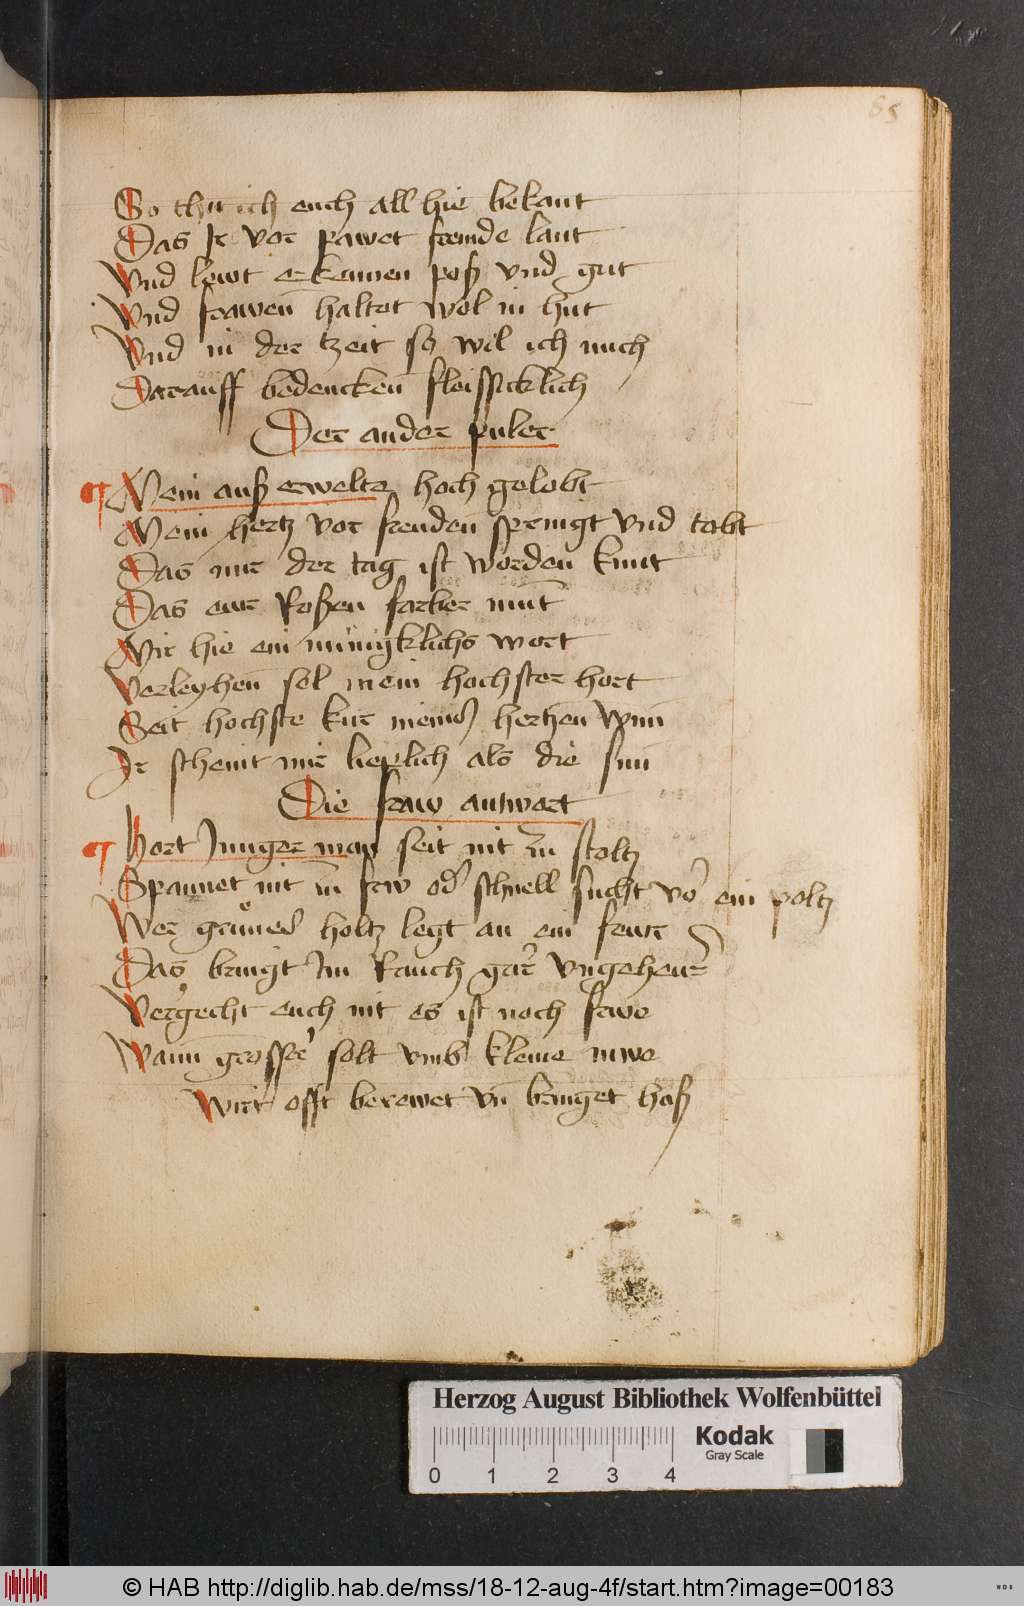 85
So thu ich euch all hie bekant
Das Ir vor pawet fremde lant
Vnd lewt erkennen poß vnd gut
Vnd frawen haltet wol in hut
Vnd in der tzeit so wil ich mich
Darauff bedencken fleissicklich
Der ander puler
Mein auß erwelte hoch gelobt
Mein hertz vor freuden springt vnd tobt
Das mir der tag ist worden kunt
Das ewr Roßen farber munt
Mir hie ein mynigklichs wort
Verleyhen sol mein hochster hort
Seit hochste kur meines hertzen wun
Ir scheint mir lieplich als die sun
Die fraw antwort
Hort Junger man seit nit zu stoltz
Spannet nit zu frw oder schnell sucht vor ein poltz
Wer grunes holtz legt an ein fewr
Das bringt Im Rauch gar vngehewr
Vergecht euch nit es ist noch frwe
Wann grosser solt vmb kleine mwe
Wirt offt berewet vn bringet haß
Herzog August Bibliothek Wolfenbüttel
Kodak
Gray Scale
0 1 2 3 4
© HAB http://diglib.hab.de/mss/18-12-aug-4f/start.htm?image=00183